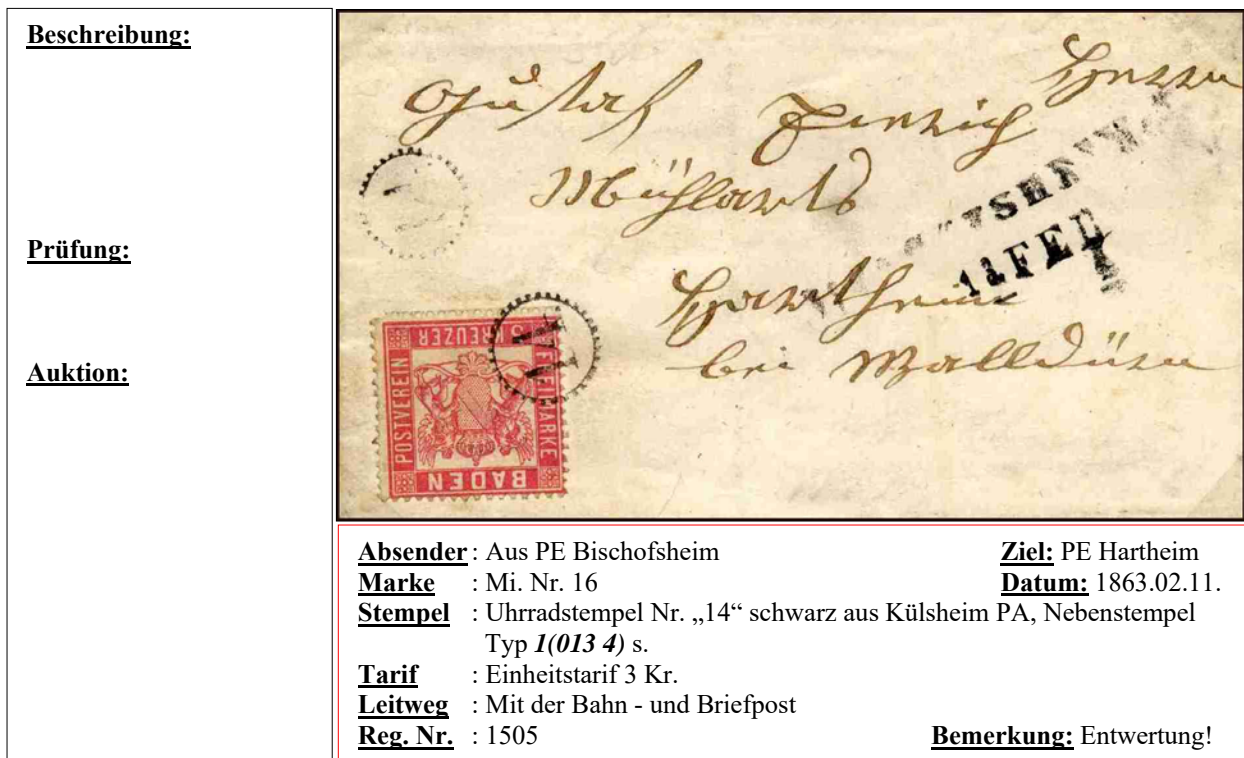 Beschreibung:
Prüfung:
Auktion:
Gustav
bei Walldürn
11 FEB
3 KREUZER
POSTVEREIN
FREIMARKE
BADEN
Absender : Aus PE Bischofsheim Ziel: PE Hartheim
Marke : Mi. Nr. 16 Datum: 1863.02.11.
Stempel : Uhrradstempel Nr. „14“ schwarz aus Külsheim PA, Nebenstempel
Typ 1(013 4) s.
Tarif : Einheitstarif 3 Kr.
Leitweg : Mit der Bahn - und Briefpost
Reg. Nr. : 1505 Bemerkung: Entwertung!